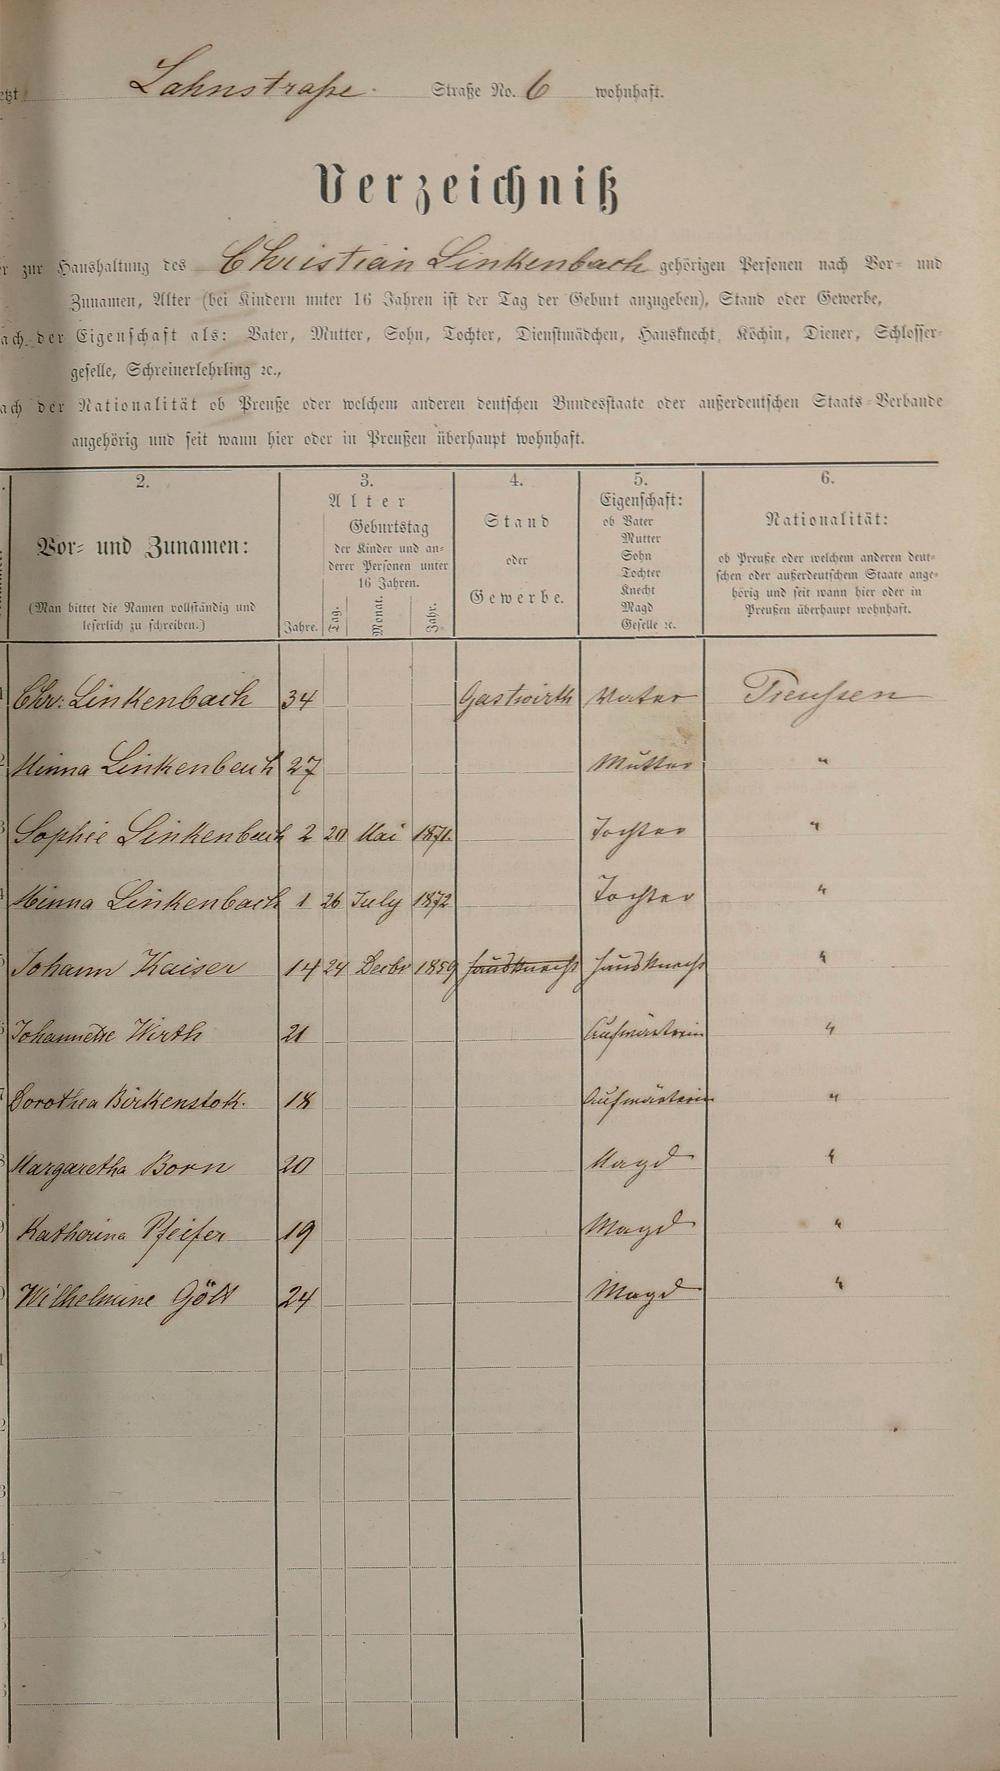 etzt Lahnstraße. Straße No. 6 wohnhaft.
Verzeichniß
er zur Haushaltung des Christian Linkenbach gehörigen Personen nach Vor- und
Zunamen, Alter (bei Kindern unter 16 Jahren ist der Tag der Geburt anzugeben), Stand oder Gewerbe,
ach der Eigenschaft als: Vater, Mutter, Sohn, Tochter, Dienstmädchen, Hausknecht, Köchin, Diener, Schlosser-
geselle, Schreinerlehrling ꝛc.,
ach der Nationalität ob Preuße oder welchem anderen deutschen Bundesstaate oder außerdeutschen Staats-Verbande
angehörig und seit wann hier oder in Preußen überhaupt wohnhaft.
2. 3. 4. 5. 6.
Vor- und Zunamen:
(Man bittet die Namen vollständig und
leserlich zu schreiben.)
Alter
Geburtstag
der Kinder und an-
derer Personen unter
16 Jahren.
Jahre. Tag. Monat. Jahr.
Stand
oder
Gewerbe.
Eigenschaft:
ob Vater
Mutter
Sohn
Tochter
Knecht
Magd
Geselle ꝛc.
Nationalität:
ob Preuße oder welchem anderen deut-
schen oder außerdeutschem Staate ange-
hörig und seit wann hier oder in
Preußen überhaupt wohnhaft.
1 Chr: Linkenbach 34 Gastwirth Vater Preußen
2 Minna Linkenbach 27 Mutter "
3 Sophie Linkenbach 2 20 Mai 1871. Tochter "
4 Minna Linkenbach 1 26 July 1872 Tochter "
5 Johann Kaiser 14 24 Decbr 1859 Hausknecht Hausknecht "
6 Johannette Wirth 21 Aufwärterin "
7 Dorothea Birkenstok. 18 Aufwärterin "
8 Margaretha Born 20 Magd "
9 Katharina Pfeifer 19 Magd "
0 Wilhelmine 24 Magd "
1
2
3
4
5
6